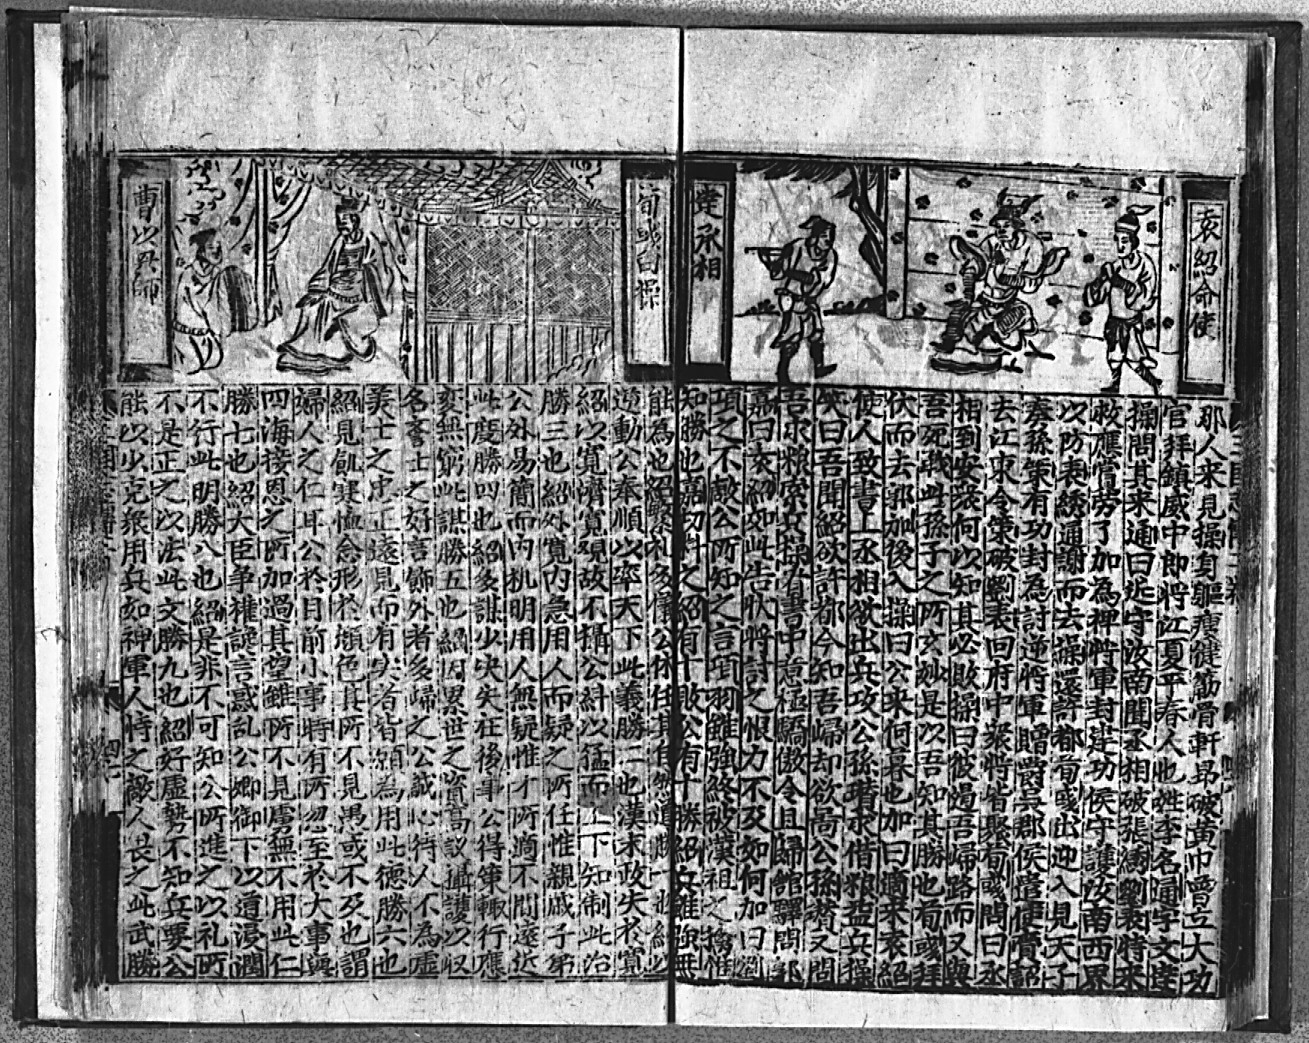 袁紹命使
達丞相
那人来見操身軀瘦健筋骨軒昂破黄巾曾立大功
官拜鎮威中郎將江夏平春人也姓李名通字文達
操問其来通曰近守汝南聞丞相破張綉劉表特来
救應嘗勞了加為裨將軍封建功侯守護汝南西界
以防表綉通謝而去操還許都荀彧出迎入見天子
奏孫策有功封為討逆將軍贈爵吳郡侯遣使賫詔
去江東令策破劉表回府中衆將皆聚荀彧問曰丞
相到安衆何以知其必敗操曰彼遏吾歸路而又與
吾死戰此孫子之所玄妙是以吾知其勝也荀彧拜
伏而去郭加後入操曰公来何暮也加曰適来袁紹
使人致書上丞相欲出兵攻公孫瓚求借粮益兵操
笑曰吾聞紹欲許都今知吾歸却欲啇公孫瓚又問
吾求粮索兵操看書中意極驕傲令且歸館驛問郭
嘉曰袁紹如此告狀將討之恨力不及如何加曰劉
項之不敵公所知之言項羽雖強終被漢祖之擒惟
知勝也嘉切料之紹有十敗公有十勝紹兵雖強無
荀彧白操
曹以兵師
能為也紹繁礼多儀公体任其自然道勝一也紹以
逆動公奉順以率天下此義勝二也漢末政失於寬
紹以寬濟寬故不攝公糾以猛而上下知制此治
勝三也紹外寬内急用人而疑之所任惟親戚子弟
公外易簡而内机明用人無疑惟才所適不間遠近
此度勝四也紹多謀少决失在後事公得策輒行應
变無窮此謀勝五也紹因累世之資高議攝讓以收
名奢士之好言飾外者多歸之公誠心待人不為虚
美士之忠正遠見而有实者皆願為用此德勝六也
紹見飢寒恤念形於顔色其所不見愚或不及也謂
婦人之仁耳公於目前小事時有所忽至於大事與
四海接恩之所加過其望雖所不見慮無不用此仁
勝七也紹大臣争權讒言惑乱公御下以道浸潤
不行此明勝八也紹是非不可知公所進之以礼所
不是正之以法此文勝九也紹好虚勢不知兵要公
能以少克衆用兵如神軍人恃之敵人畏之此武勝